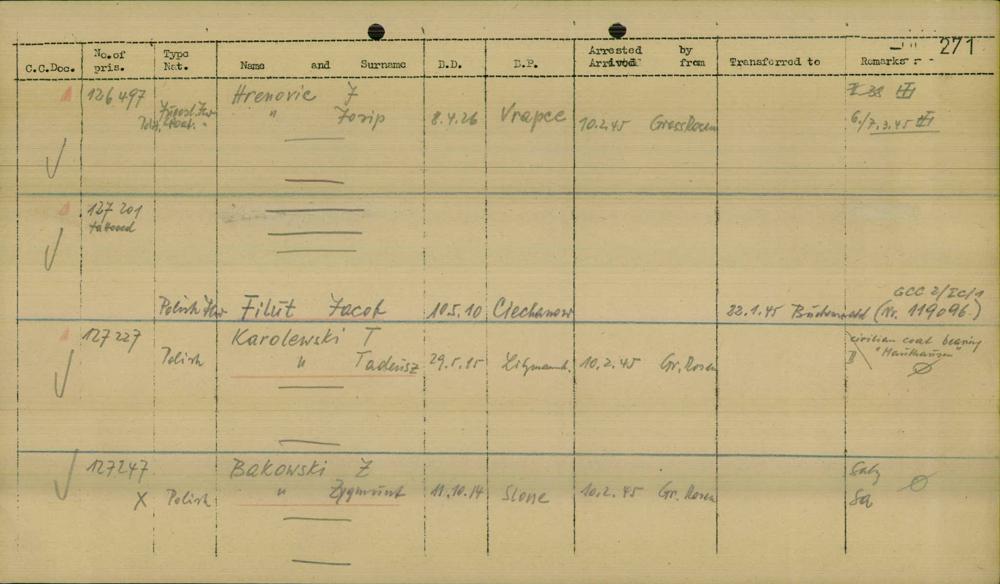 271
No.of Type Arrested by
C.C.Doc. pris. Nat. Name and Surname B.D. B.P. Arrived from Transferred to Remarks
126497 Hrenovic J III
" Josip 8.4.26 Vrapce 10.2.45 GrossRosen 6./7.3.45 III
127 201
tattooed
GCC 2/IC/1
Polish Jew Filut Jacob 10.5.10 Ciechanow 22.1.45 Buchenwald (Nr. 119096)
127227 Karolewski T civilian coat bearing
Polish " Tadeusz 29.5.15 10.2.45 Gr.Rosen II "Mauthausen"
127247 Bakowski Z
X Polish " Zygmunt 11.10.14 Slone 10.2.45 Gr.Rosen Sa